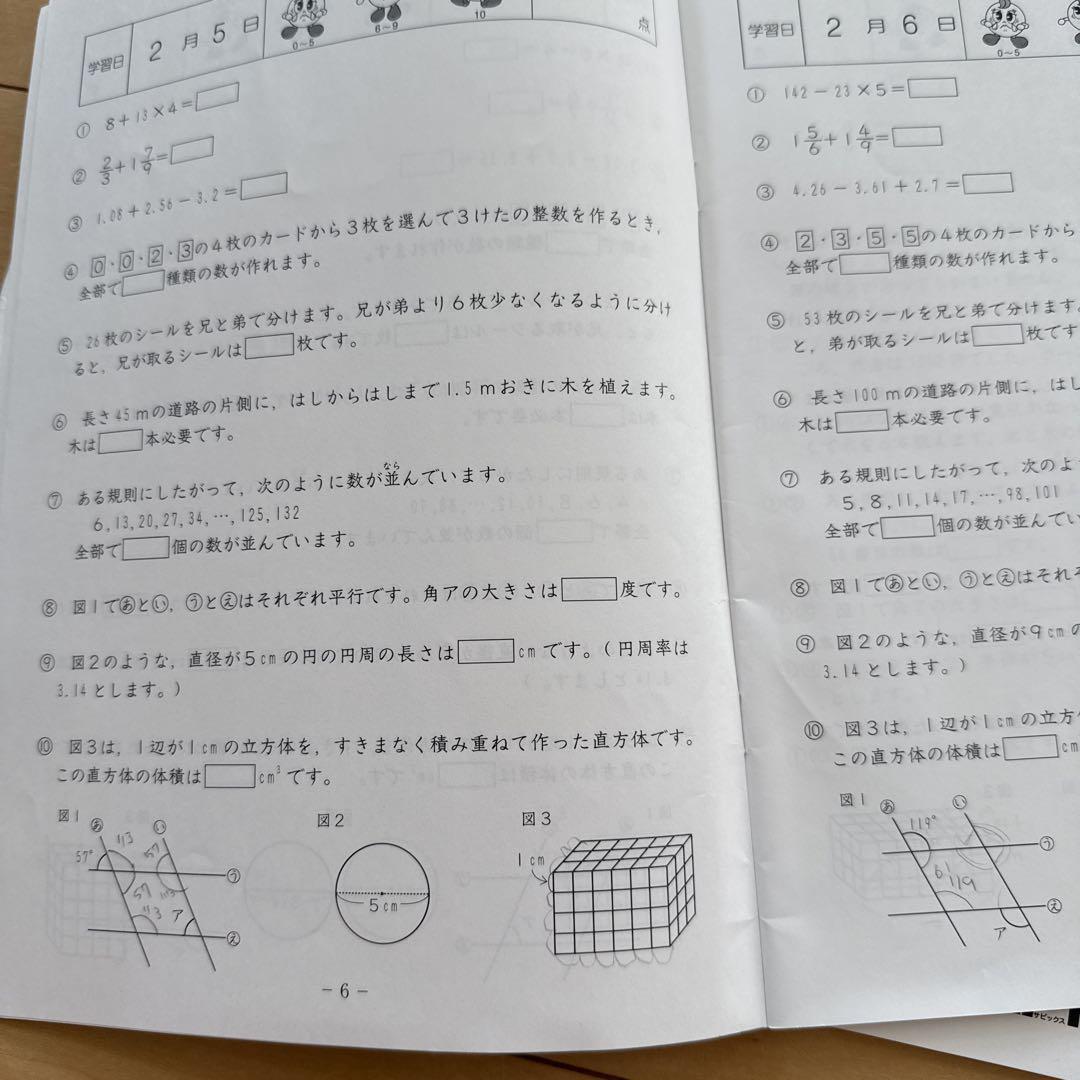 学習日 2月5日
0~5 6~9 10
点
① 8+13×4=□
② 2/3+1 7/9=□
③ 1.08+2.56-3.2=□
④ 0・0・2・3の4枚のカードから3枚を選んで3けたの整数を作るとき,
全部で□種類の数が作れます。
⑤ 26枚のシールを兄と弟で分けます。兄が弟より6枚少なくなるように分け
ると, 兄が取るシールは□枚です。
⑥ 長さ45mの道路の片側に, はしからはしまで1.5mおきに木を植えます。
木は□本必要です。
なら
⑦ ある規則にしたがって, 次のように数が並んでいます。
6,13,20,27,34,…,125,132
全部で□個の数が並んでいます。
⑧ 図1であとい, うとえはそれぞれ平行です。角アの大きさは□度です。
⑨ 図2のような, 直径が5cmの円の円周の長さは□cmです。(円周率は
3.14とします。)
⑩ 図3は, 1辺が1cmの立方体を, すきまなく積み重ねて作った直方体です。
この直方体の体積は□cm³です。
図1
あ い
57° 113 57
う
57 113
113 ア
え
図2
5cm
図3
1cm
- 6 -
学習日 2月6日
0~5
① 142-23×5=□
② 1 5/6+1 4/9=□
③ 4.26-3.61+2.7=□
④ 2・3・5・5の4枚のカードから
全部で□種類の数が作れます。
⑤ 53枚のシールを兄と弟で分けます。
と, 弟が取るシールは□枚です
⑥ 長さ100mの道路の片側に, はし
木は□本必要です。
⑦ ある規則にしたがって, 次のよう
5,8,11,14,17,…,98,101
全部で□個の数が並んでいます。
⑧ 図1であとい, うとえはそれぞ
⑨ 図2のような, 直径が9cmの
3.14とします。)
⑩ 図3は, 1辺が1cmの立方
この直方体の体積は□cm
図1
あ い
119°
う
119
ア
え
サピックス